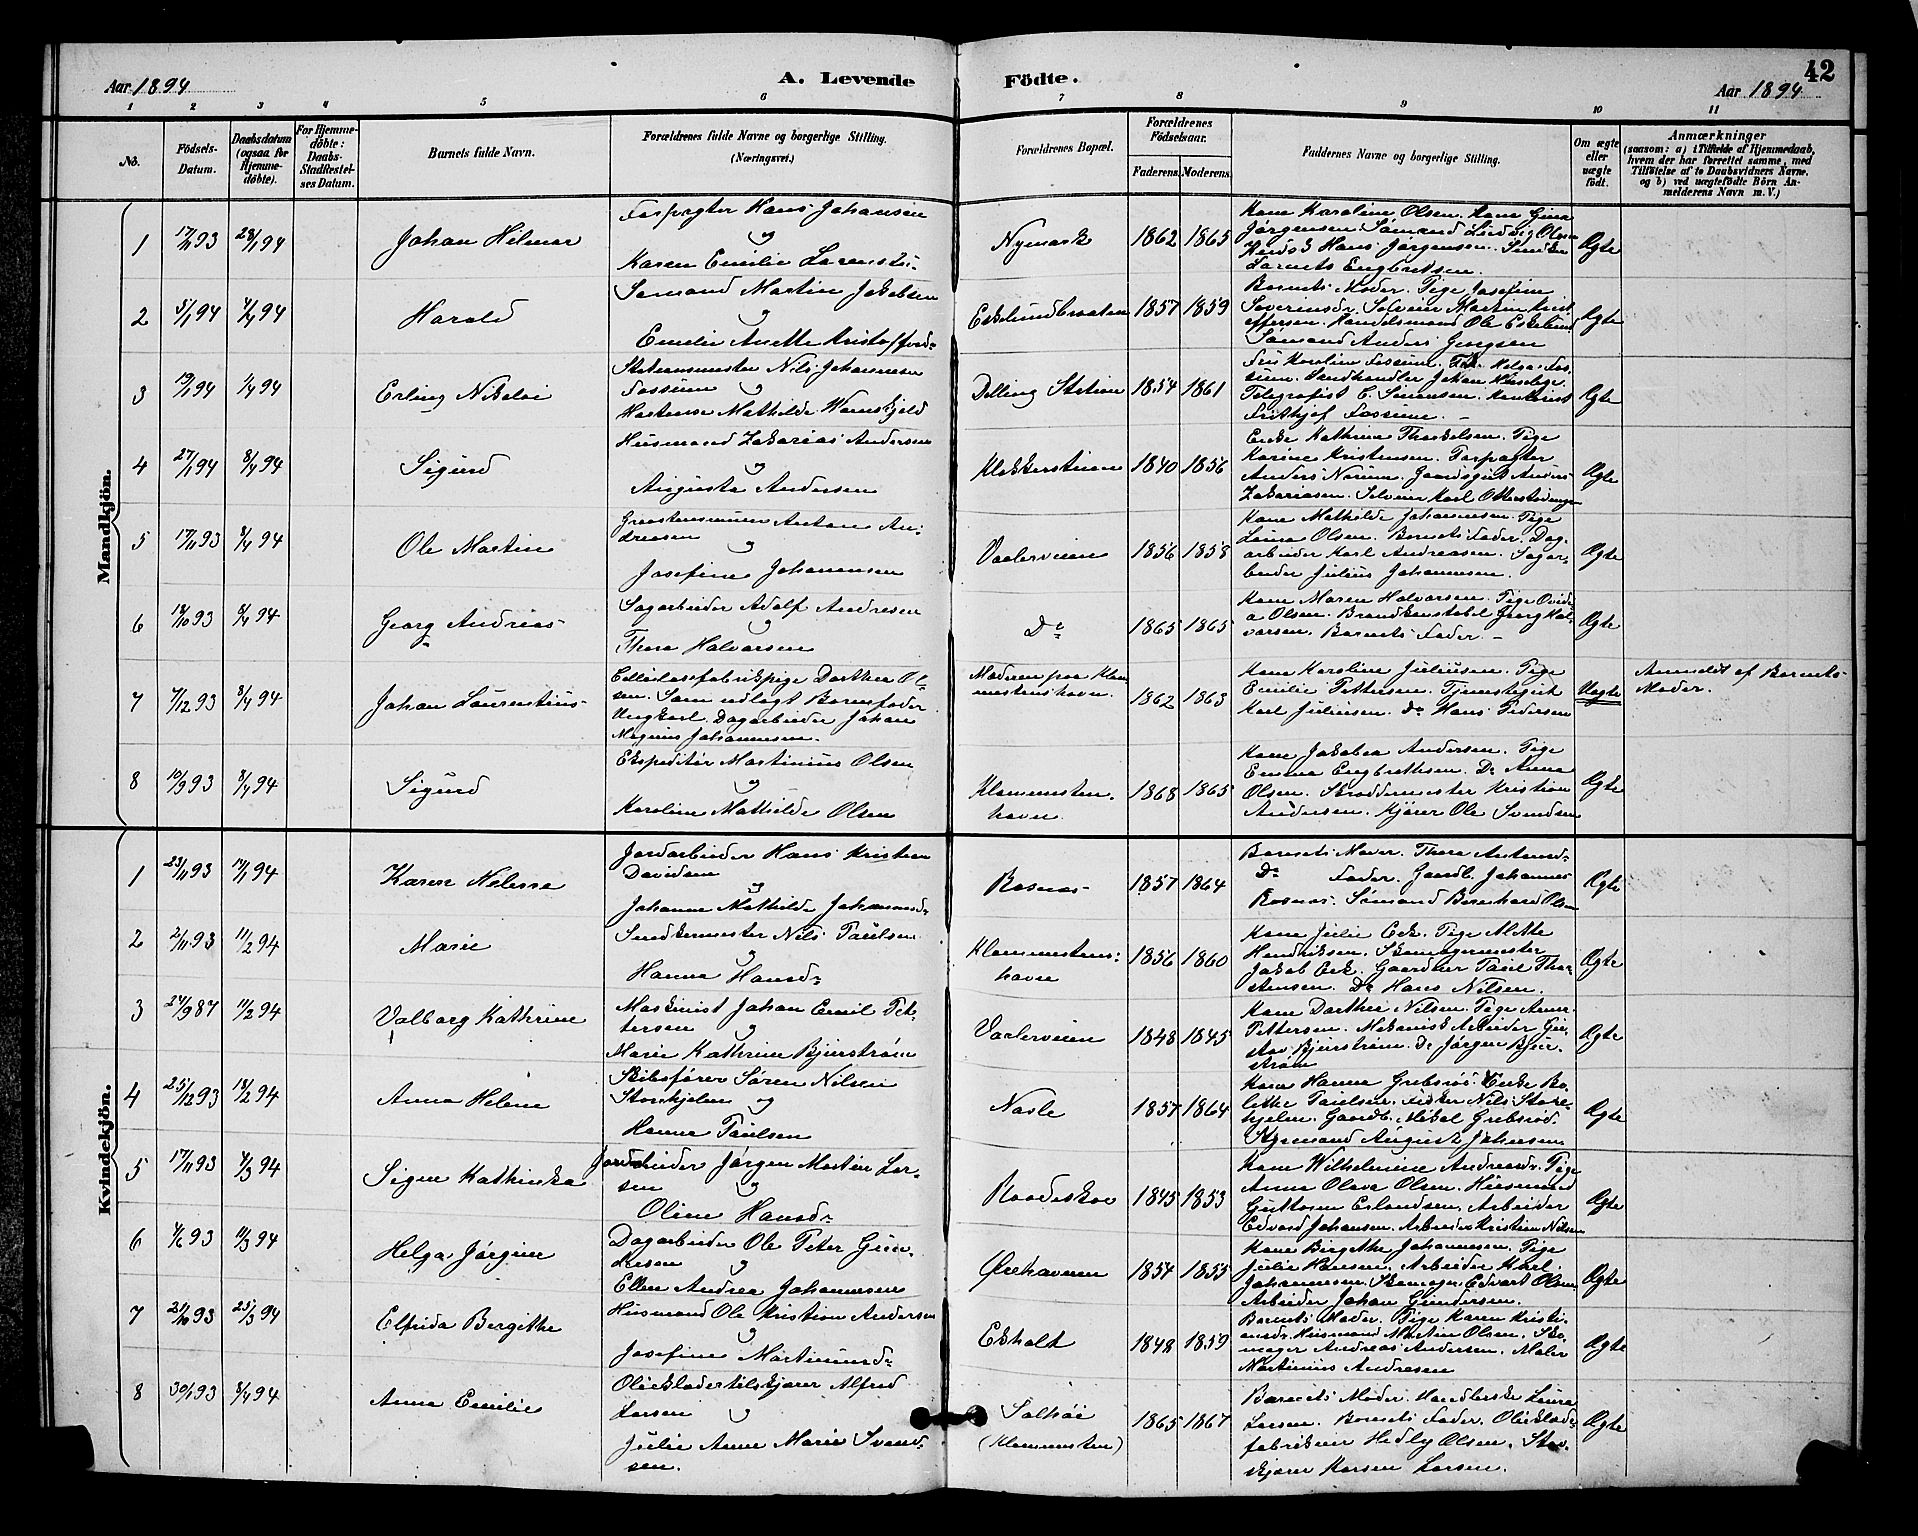 Aar 1894
A. Levende
Födte.
Aar 1894
42
1 2 3 4 5 6 7 8 9 10 11
No.
Födsels-
Datum.
Daabsdatum
(ogsaa for
Hjemme-
döbte).
For Hjemme-
döbte:
Daabs-
Stadfæstel-
ses Datum.
Barnets fulde Navn.
Forældrenes fulde Navne og borgerlige Stilling.
(Næringsvei.)
Forældrenes Bopæl.
Forældrenes
Födselsaar.
Faderens. Moderens.
Faddernes Navne og borgerlige Stilling.
Om ægte
eller
uægte
födt.
Anmærkninger
(saasom: a) i Tilfælde af Hjemmedaab,
hvem der har forrettet samme, med
Tilföielse af to Daabsvidners Navne.
og b) ved uægtefödte Börn An-
melderens Navn m. V.)
Mandkjön.
1
28/1 94
Johan Hilmar
Forpagter Hans Johansen
og
Karen Emilie Larensdr.
Nymark
1862 1865
Kone Karoline Olsen. Kone Gina
Jørgensen. Sømand Ludvig Olsen
Hans Jørgensen.
Engbretsen.
Ægte
2
5/1 94
Harald
Sømand Martin Jakobsen
og
Emilie Anette Kristoffersd.
Eskelundbraaten
1857 1859
Barnets Moder. Pige Josefine
Severinsdr. Selveier Martin Krist
offersen. Handelsmand Ole Eskelund
Sømand Anders Georgsen
Ægte
3
1/4 94
Erling Nikolai
Stationsmester Nils Johannesen
Fossum og
Hortense Mathilde Wernskjold
Dilling Station
1854 1861
Fru Karoline Fossum. Frk. Helga Fos-
sum. Landhandler Johan
Telegrafist C. Simensen.
Frithjof Fossum.
Ægte
4
27/1 94 8/4 94
Sigurd
Husmand Zakarias Andersen
og
Augusta Andersen
Klokkerstuen
1840 1856
Enke Kathrine Thorkelsen. Pige
Karine Kristensen. Forpagter
Anders Narum. Gaardsgut Anders
Zakariasen. Selveier Karl
Ægte
5
17/11 93 8/4 94
Ole Martin
Anton An-
dreasen
og
Josefine Johannesen
Vaalerveien
1856 1858
Kone Mathilde Johannesen. Pige
Lina Olsen. Barnets Fader. Dag-
arbeider Karl Andreasen. Sagar-
beider Julius Johannesen.
Ægte
6
93 8/4 94
Georg Andreas
Sagarbeider Adolf Andresen
og
Thora Halvorsen
Do
1865 1865
Kone Maren Halvorsen. Pige Ovidi-
a Olsen. Brandkonstabel Georg Hal-
vorsen. Barnets Fader.
Ægte
7
7/12 93 8/4 94
Johan Laurentius
Cellulosefabrikpige Dorthea Ol-
sen. Som udlagt Barnefader
Ungkarl. Dagarbeider Johan
Magnus Johannesen.
Moderen paa Klem
metstenshavn.
1862 1863
Kone Karoline Juliusen. Pige
Emilie Pettersen. Tjenestegut
Karl Juliusen. Do Hans Pedersen
Uægte
Anmeldt af Barnets
Moder.
8
10/9 93 8/4 94
Sigurd
Ekspeditør Martinius Olsen
og
Karoline Mathilde Olsen
Klemmetsten-
havn.
1868 1865
Kone Jakobea Andersen. Pige
Emma Engbrethsen. Do Anna
Olsen. Skræddermester Kristian
Andersen. Kjører Ole Svendsen
Ægte
Kvindekjön.
1
23/11 93 94
Karen Nilssa
Jordarbeider Hans Kristian
Davidsen
og
Johanne Mathilde Johannesd.
Rosnæs
1857 1864
Barnets Moder. Thora Antonsd.
Do Fader. Gaardb. Johannes
Rosnæs. Sømand Bernhard Olsen
Ægte
2
2/11 93 11/2 94
Marie
Snedkermester Nils Paulsen
og
Hanna Hansd.
Klemmetstens-
havn
1856 1860
Kone Julie Eek. Pige Alette
Hendriksen. Skomagermester
Jakob Eek. Gaardbr. Paul Thor-
stensen. Do Hans Nilsen.
Ægte
3
24/9 87 11/2 94
Valborg Kathrine
Maskinist Johan Emil Pet-
tersen og
Marie Kathrine Bjurstrøm
Vaalerveien
1848 1845
Kone Dorthea Nilsen. Pige Anna
Pettersen. Mekanisk Arbeider Gu-
stav Bjurstrøm. Do Jørgen Bjur-
strøm
Ægte
4
25/12 93 18/2 94
Anna Helene
Skibsfører Søren Nilsen
Storehjelen og
Hanna Paulsen
Nasle
1857 1864
Kone Hanna Grebsrød. Enke Bo-
lette Paulsen. Fisker Nils Store-
hjelen. Gaardb. Mikal Grebsrød.
Styrmand August Johansen
Ægte
5
17/11 93 4/3 94
Signe Kathinka
Jordarbeider Jørgen Martin Lar-
sen og
Oline Hansd.
Raadeskov
1845 1853
Kone Wilhelmine Andreasdr. Pige
Anna Olava Olsen. Husmand
Guttorm Erlandsen. Arbeider
Edvard Johansen. Arbeider Kristian Nilsen
Ægte
6
4/6 93 11/3 94
Helga Jørgine
Dagarbeider Ole Peter Gun-
dersen og
Ellen Andrea Johannesen
Ørehavnen
1854 1855
Kone Birgithe Johannesen. Pige
Julie Hansen. Arbeider Karl
Johannesen. Skomager Edvart Olsen
Arbeider Johan Gundersen.
Ægte
7
21/10 93 25/3 94
Elfrida Bergithe
Husmand Ole Kristian Andersen
og
Josefine Martinusd.
Ekholt
1848 1859
Barnets Moder. Pige Karen Kristi-
ansdr. Husmand Martin Olsen. Sko-
mager Andreas Andersen. Maler
Martinius Andresen
Ægte
8
93 8/4 94
Anna Emilie
Oliekladertilskjærer Alfred
Larsen og
Julie Anne Marie Svend-
sen.
Solhøi
(Klemmetsten)
1865 1867
Barnets Moder. Handlerske Laura
Larsen. Barnets Fader. Olieklæde-
fabrikeier Hedly Olsen.
Karsen Larsen.
Ægte